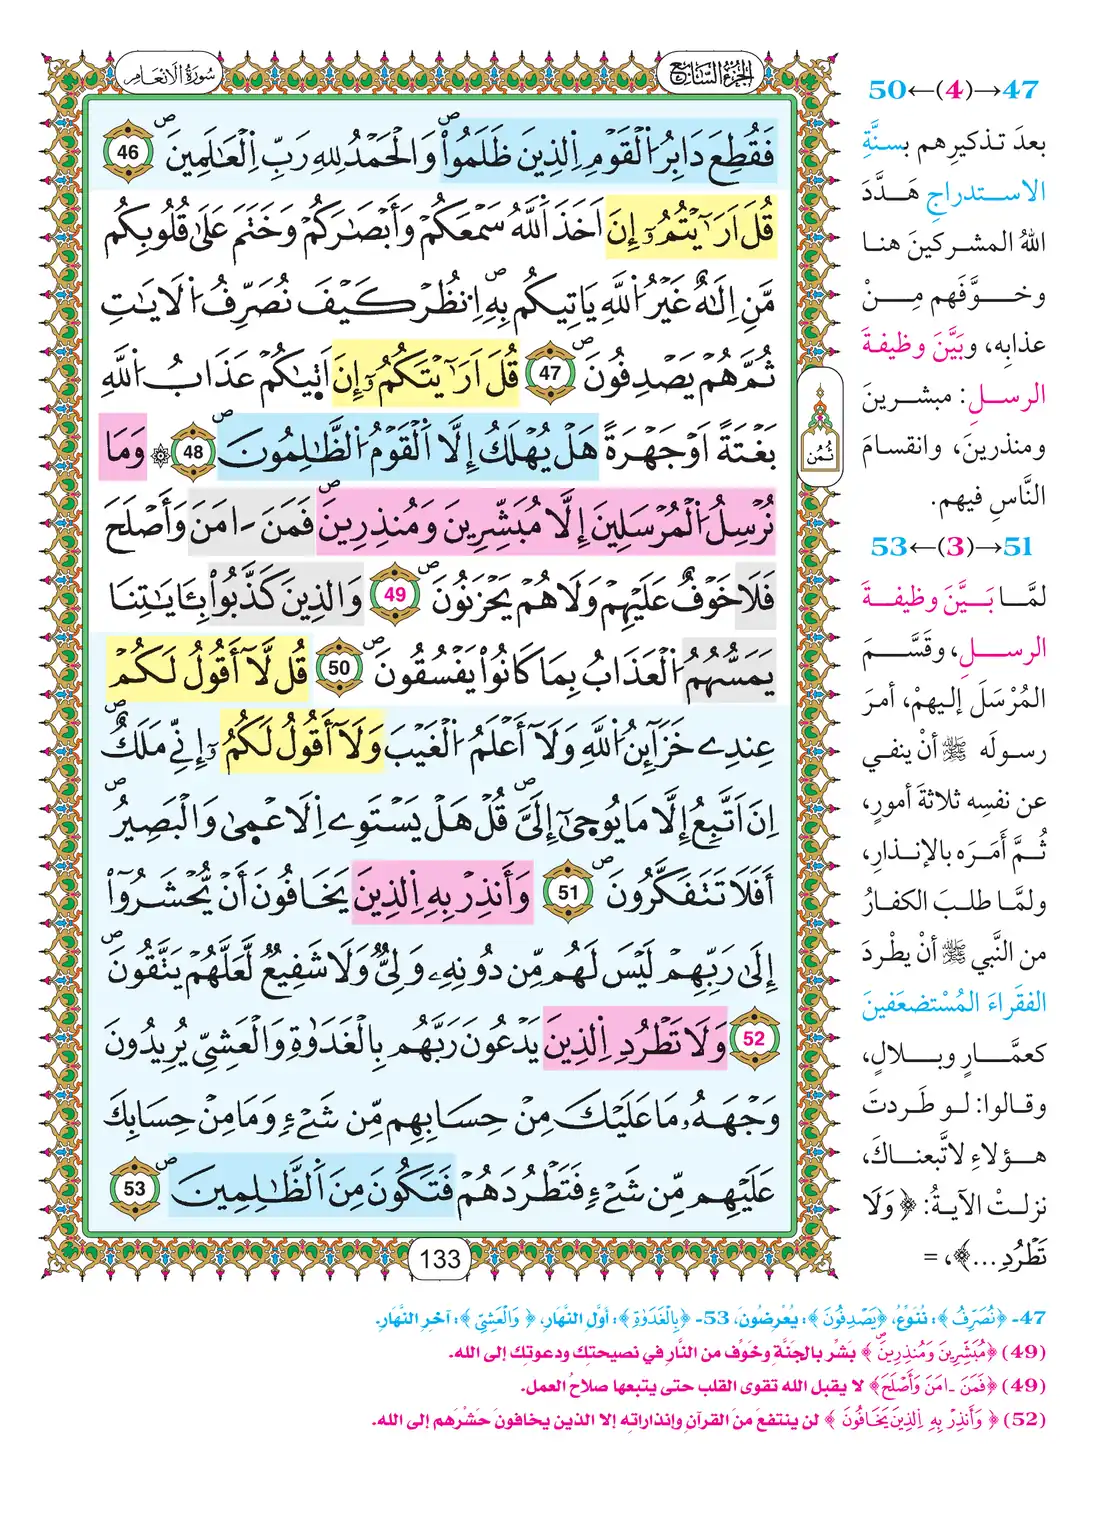 الجزء السابع
سورة الأنعام
فَقُطِعَ دَابِرُ اُ۬لْقَوْمِ اِ۬لذِينَ ظَلَمُواْۖ وَالْحَمْدُ لِلهِ رَبِّ اِ۬لْعَٰلَمِينَۖ 46
قُلَ اَرَٰٓيْتُمُۥٓ إِنَ اَخَذَ اَ۬للَّهُ سَمْعَكُمْ وَأَبْصَٰرَكُمْ وَخَتَمَ عَلَىٰ قُلُوبِكُم
مَّنِ اِلَٰهٌ غَيْرُ اُ۬للَّهِ يَاتِيكُم بِهِۖ اِ۟نظُرْ كَيْفَ نُصَرِّفُ اُ۬لَايَٰتِ
ثُمَّ هُمْ يَصْدِفُونَۖ 47 قُلَ اَرَٰٓيْتَكُمُۥٓ إِنَ اَتٜيٰكُمْ عَذَابُ اُ۬للَّهِ
بَغْتَةً اَوْ جَهْرَةً هَلْ يُهْلَكُ إِلَّا اَ۬لْقَوْمُ اُ۬لظَّٰلِمُونَۖ 48 ۞ وَمَا
نُرْسِلُ اُ۬لْمُرْسَلِينَ إِلَّا مُبَشِّرِينَ وَمُنذِرِينَۖ فَمَنَ اٰمَنَ وَأَصْلَحَ
فَلَا خَوْفٌ عَلَيْهِمْ وَلَا هُمْ يَحْزَنُونَۖ 49 وَالذِينَ كَذَّبُواْ بِـَٔايَٰتِنَا
يَمَسُّهُمُ اُ۬لْعَذَابُ بِمَا كَانُواْ يَفْسُقُونَۖ 50 قُل لَّآ أَقُولُ لَكُمْ
عِندِے خَزَآئِنُ اُ۬للَّهِ وَلَآ أَعْلَمُ اُ۬لْغَيْبَ وَلَآ أَقُولُ لَكُمُۥٓ إِنِّے مَلَكٌۖ
اِنَ اَتَّبِعُ إِلَّا مَا يُوحٜيٰٓ إِلَيَّۖ قُلْ هَلْ يَسْتَوِے اِ۬لَاعْمٜيٰ وَالْبَصِيرُۖ
أَفَلَا تَتَفَكَّرُونَۖ 51 وَأَنذِرْ بِهِ اِ۬لذِينَ يَخَافُونَ أَنْ يُّحْشَرُوٓاْ
إِلَىٰ رَبِّهِمْ لَيْسَ لَهُم مِّن دُونِهِۦ وَلِيٌّ وَلَا شَفِيعٌ لَّعَلَّهُمْ يَتَّقُونَۖ
52 وَلَا تَطْرُدِ اِ۬لذِينَ يَدْعُونَ رَبَّهُم بِالْغَدَوٰةِ وَالْعَشِيِّ يُرِيدُونَ
وَجْهَهُۥ مَا عَلَيْكَ مِنْ حِسَابِهِم مِّن شَےْءٖ وَمَا مِنْ حِسَابِكَ
عَلَيْهِم مِّن شَےْءٖ فَتَطْرُدَهُمْ فَتَكُونَ مِنَ اَ۬لظَّٰلِمِينَۖ 53
ثُمُن
133
47→(4)←50
بعدَ تذكيرِهم بسنَّةِ
الاستدراجِ هَدَّدَ
اللهُ المشركينَ هنا
وخوَّفَهم مِنْ
عذابِه، وبَيَّنَ وظيفةَ
الرسلِ: مبشرينَ
ومنذرينَ، وانقسامَ
النَّاسِ فيهم.
51→(3)←53
لمَّا بَيَّنَ وظيفةَ
الرسلِ، وقَسَّمَ
المُرْسَلَ إليهمْ، أمرَ
رسولَه ﷺ أنْ ينفي
عن نفسِه ثلاثةَ أمورٍ،
ثُمَّ أَمَرَه بالإنذارِ،
ولمَّا طلبَ الكفارُ
من النَّبي ﷺ أنْ يطْردَ
الفقَراءَ المُسْتضعَفينَ
كعمَّارٍ وبلالٍ،
وقالوا: لو طَردتَ
هؤلاءِ لاتَّبعناكَ،
نزلتْ الآيةُ: ﴿وَلَا
تَطْرُدِ...﴾، =
47- ﴿نُصَرِّفُ﴾: نُنَوِّعُ، ﴿يَصْدِفُونَ﴾: يُعْرِضُونَ، 53- ﴿بِالْغَدَوٰةِ﴾: أوَّلِ النَّهارِ، ﴿وَالْعَشِيِّ﴾: آخرِ النَّهارِ.
(49) ﴿مُبَشِّرِينَ وَمُنذِرِينَۖ﴾ بَشِّر بالجَنَّةِ وخَوِّف من النَّارِ في نصيحتِك ودعوتِك إلى الله.
(49) ﴿فَمَنَ اٰمَنَ وَأَصْلَحَ﴾ لا يقبل الله تقوى القلب حتى يتبعها صلاحُ العمل.
(52) ﴿وَأَنذِرْ بِهِ اِ۬لذِينَ يَخَافُونَ﴾ لن ينتفعَ منَ القرآنِ وإنذاراتِه إلا الذين يخافونَ حَشْرَهم إلى الله.